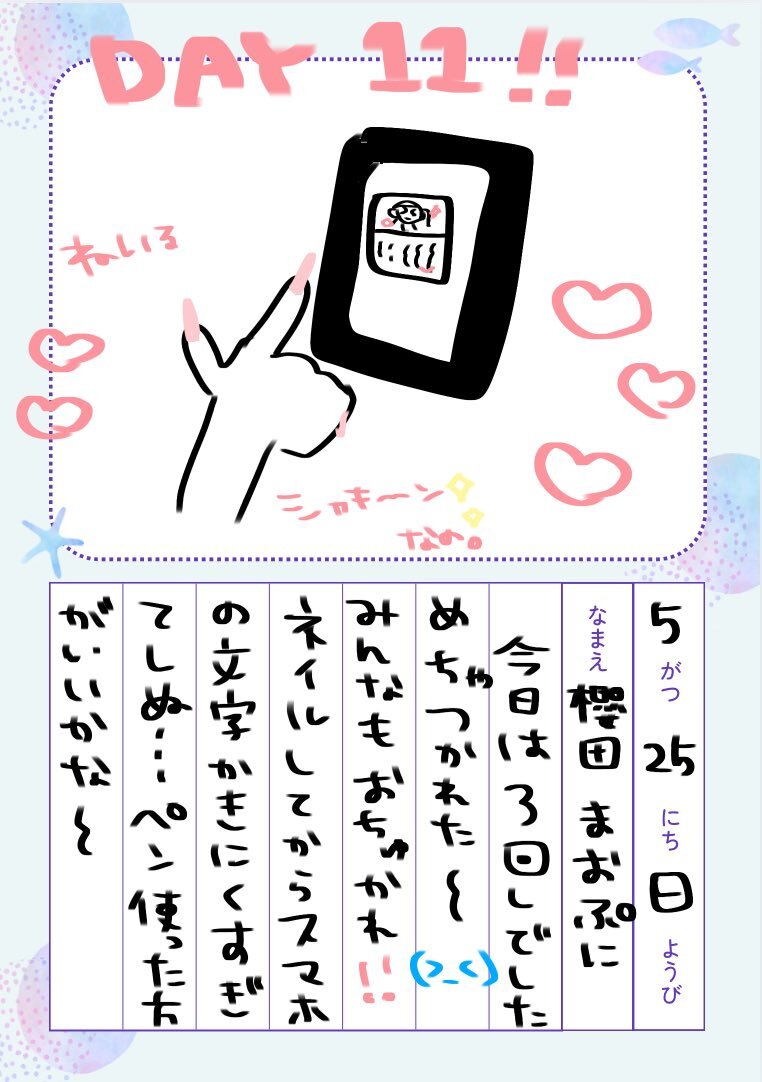 DAY 11!!
ねいる
シャキーン
なの。
5がつ25にち日ようび
なまえ 櫻田まおぷに
今日は3回しでした
めちゃつかれた〜(>_<)
みんなもおちゅかれ!!
ネイルしてからスマホ
の文字かきにくすぎ
てしぬ…ペン使った方
がいいかな〜